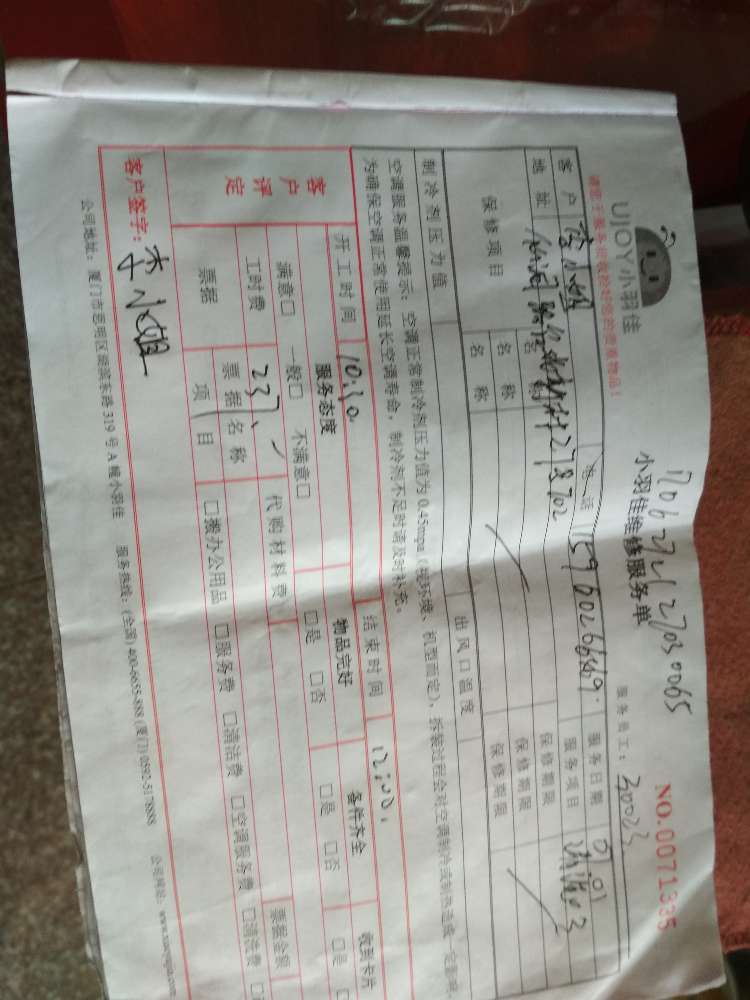 UJOY小羽佳
小羽佳维修服务单
NO.0071335
请您于服务前收拾好您的贵重物品!
服务员工: 30033
客户 李小姐 电话 15960266469 服务日期
地址 服务项目
保修项目 名称 保修期限
名称 保修期限
名称 保修期限
制冷剂压力值 出风口温度
空调服务温馨提示: 空调正常制冷剂压力值为0.45mpa (视环境、机型而定), 拆装过程会对空调制冷或制热造成一定影响,
为确保空调正常使用延长空调寿命, 制冷剂不足时请及时补充。
开工时间 10:30 结束时间 12:00
客户评定 服务态度 物品完好 备件齐全 收到卡片
满意□ 一般□ 不满意□ □是 □否 □是 □否 □是
工时费 237 代购材料费
票据 票据名称 票据金额
项目 □搬办公用品 □服务费 □清洁费 □空调服务费 □清洗费
客户签字: 李小姐
公司地址: 厦门市思明区湖滨东路319号A幢小羽佳 服务热线: (全国) 400-6655-888 (厦门) 0592-5178888 公司网站: